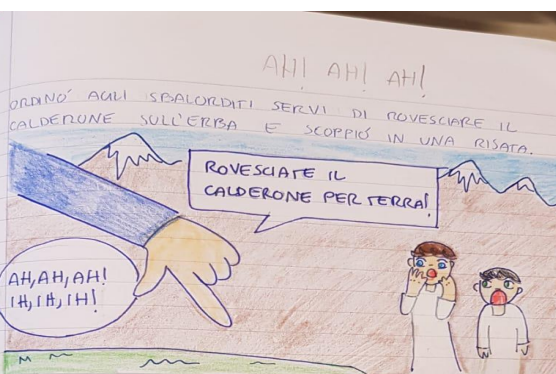 AH! AH! AH!
ORDINÓ AGLI SBALORDITI SERVI DI ROVESCIARE IL
CALDERONE SULL'ERBA E SCOPPIÓ IN UNA RISATA.
ROVESCIATE IL
CALDERONE PER TERRA!
AH, AH, AH!
IH, IH, IH!